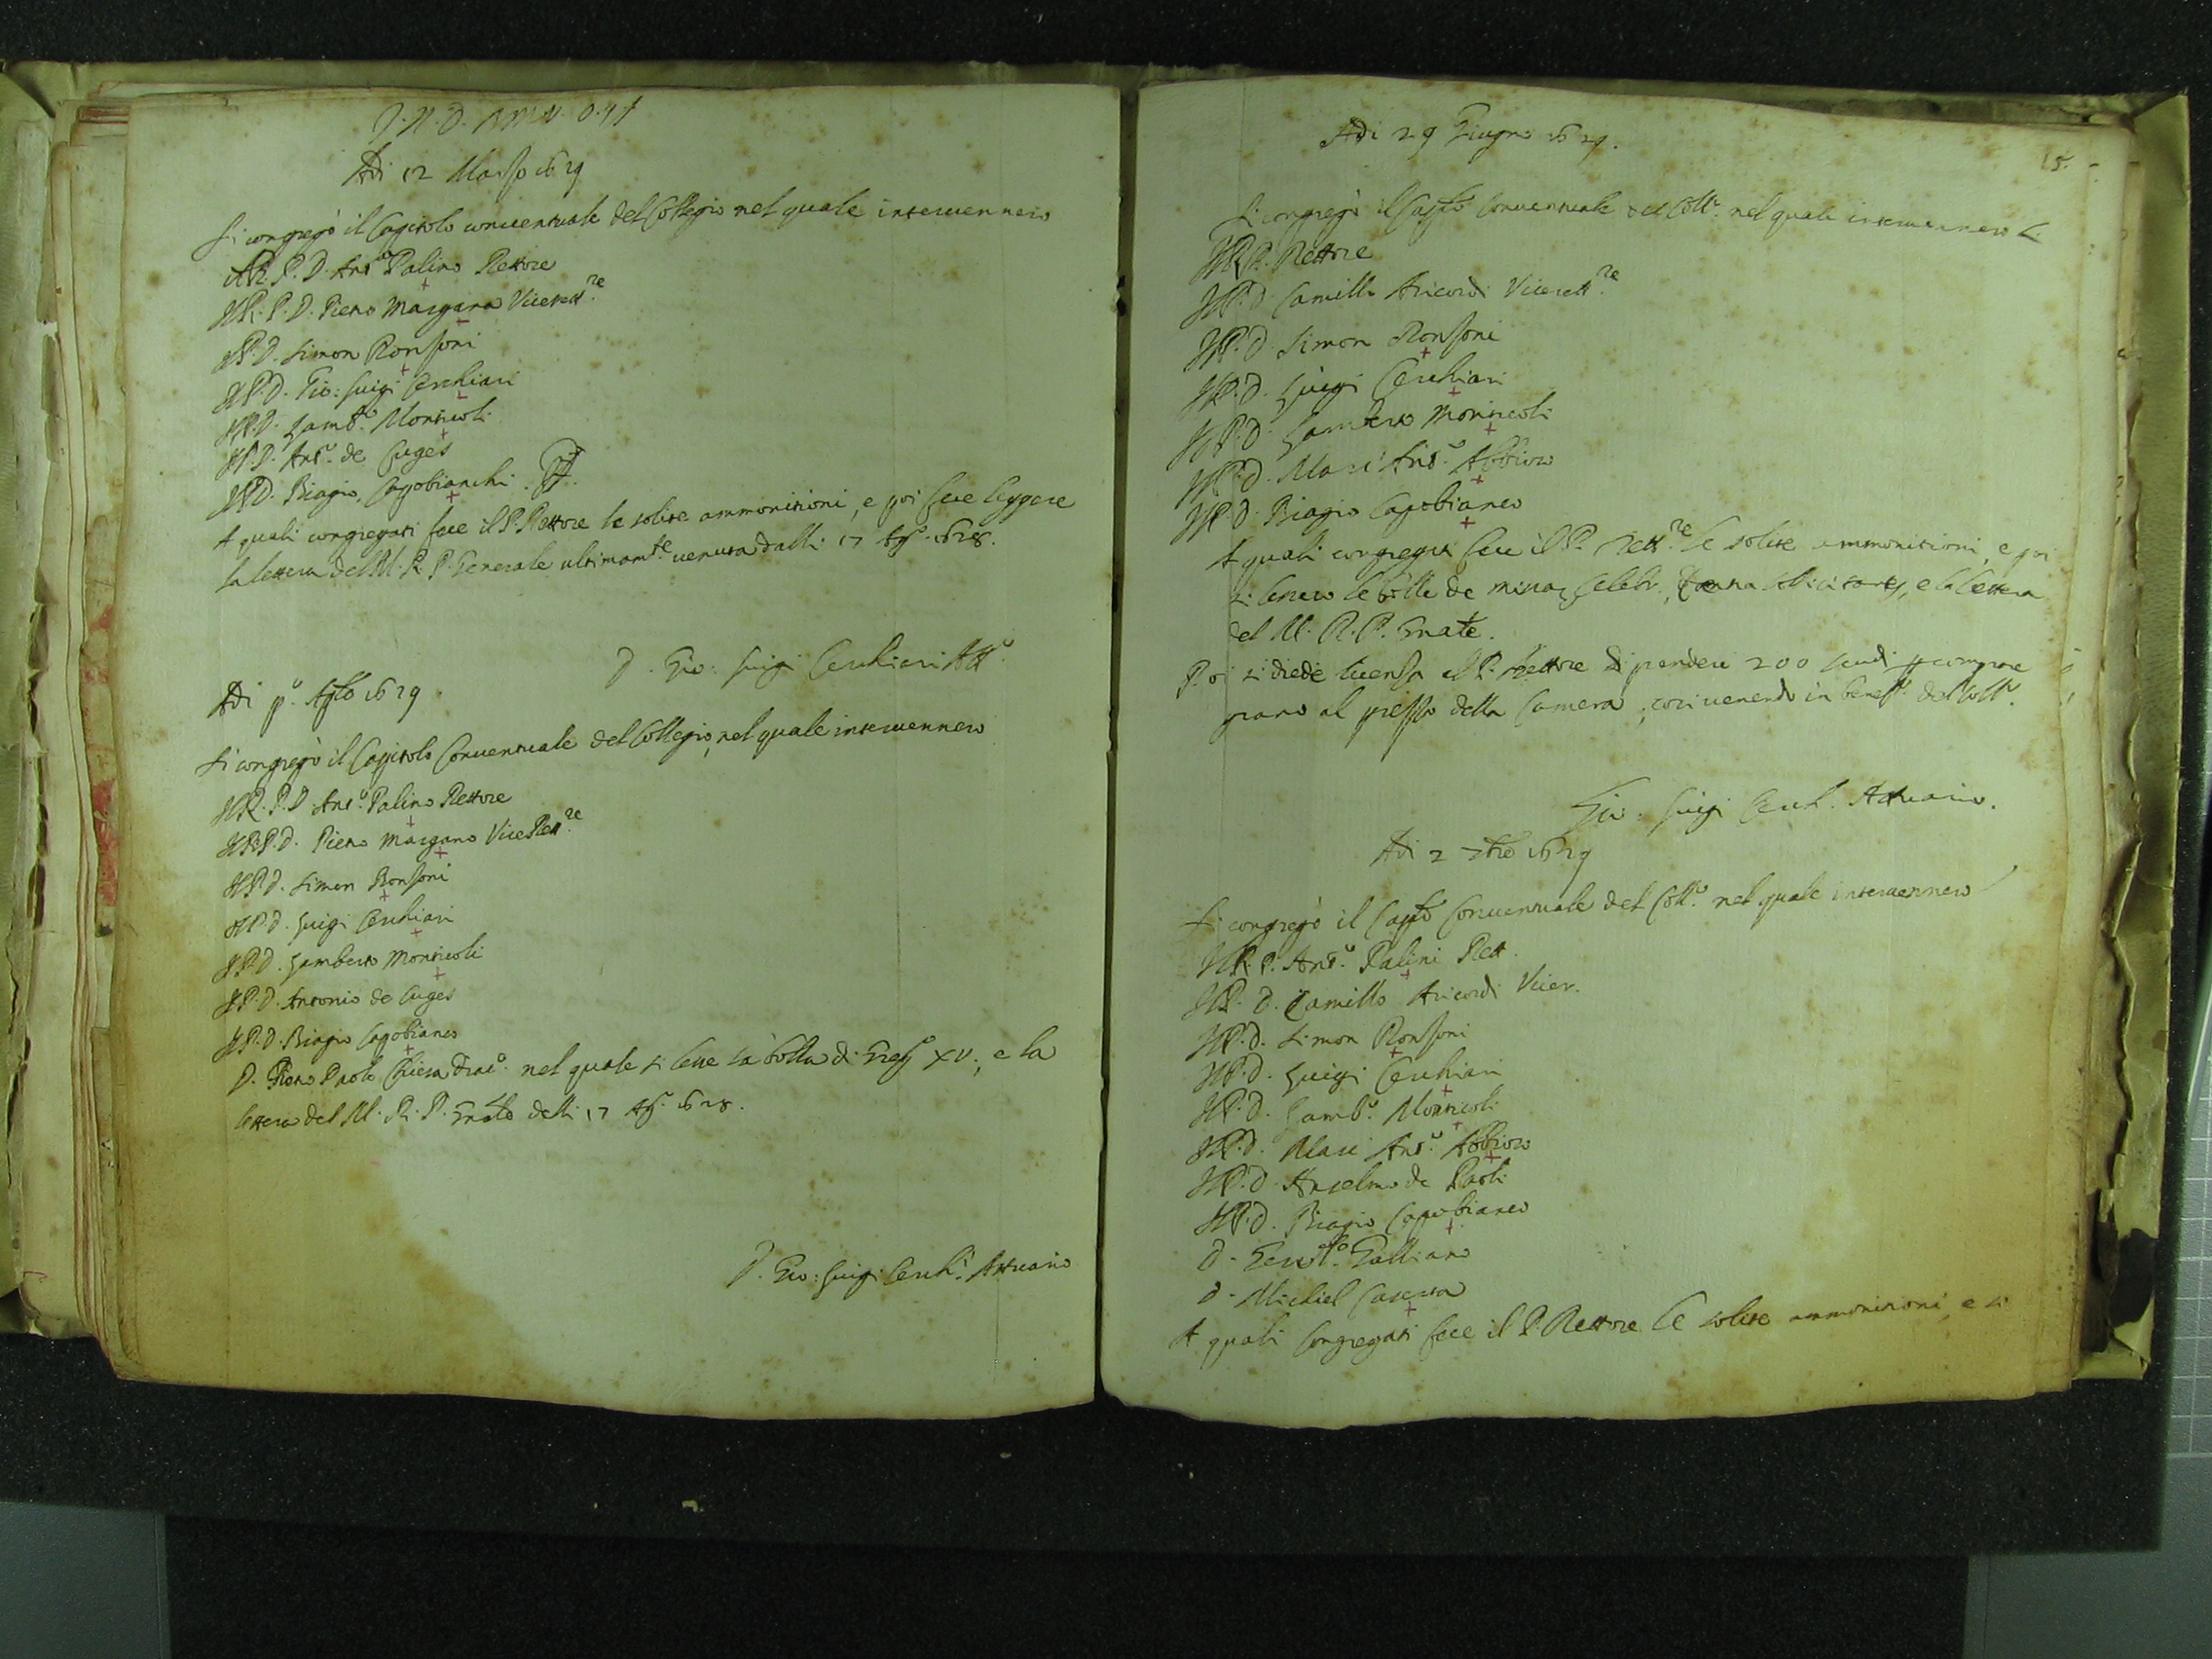 Adi 12 Marzo 1629
Si congregò il Capitolo conventuale del Collegio nel quale intervennero
Il R. P. D. Ant.º Palino Rettore
Il R. P. D. Pietro Margana Vicerett.re
Il P. D. Simon Ronzoni
Il P. D. Gio: Luigi Cerchiari
Il P. D. Lamb.º Monticoli
Il P. D. Ant.º de Cuges
Il P. D. Biagio Capobianchi
A quali congregati fece il P. Rettore le solite ammonitioni, e poi fece leggere
la lettera del M. R. P. Generale ultimam.te venuta dalli 17 Ag.º 1628.
D. Gio: Luigi Cerchiari Att.º
Adi p.º Aplo 1629
Si congregò il Capitolo Conventuale del Collegio, nel quale intervennero
Il R. P. D. Ant.º Palino Rettore
Il R. P. D. Pietro Margano Vice Rett.re
Il P. D. Simon Ronzoni
Il P. D. Luigi Cerchiari
Il P. D. Lamberto Monticoli
Il P. D. Antonio de Cuges
Il P. D. Biagio Capobianco
D. Pietro Paolo Chiesa Diac.º nel quale si lesse la bolla di Greg.º XV, e la
lettera del M. R. P. Gnale delli 17 Ag.º 1628.
D. Gio: Luigi Cerch.i Attuario
15.
Adi 29 Giugno 1629.
Si congregò il Caplo Conventuale del Coll.º nel quale intervennero li
Il R. P. Rettore
Il P. D. Camillo Aricordi Vicerett.re
Il P. D. Simon Ronzoni
Il P. D. Luigi Cerchiari
Il P. D. Lamberto Monticoli
Il P. D. Marc'Ant.º Abbioso
Il P. D. Biagio Capobianco
A quali congregati fece il P. Rett.re le solite ammonitioni, e poi
si lessero le bolle de missar. celebr., contra sollicitantes, e la lettera
del M. R. P. Gnale.
Poi si diede licenza al P. Rettore di prender 200 scudi p comprare
grano al prezzo della Camera, così venendo in benef.º del Coll.º
Gio: Luigi Cerch. Attuario.
Adi 2 7bre 1629
Si congregò il Caplo Conventuale del Coll.º nel quale intervennero
Il R. P. Ant.º Palini Rett.
Il P. D. Camillo Aricordi Vicer.
Il P. D. Simon Ronzoni
Il P. D. Luigi Cerchiari
Il P. D. Lamb.º Monticoli
Il P. D. Marc Ant.º Abbioso
Il P. D. Anselmo de Paoli
Il P. D. Biagio Capobianco
D. Galliano
D. Michiel Caserta
A quali Congregati fece il P. Rettore le solite ammonitioni, e si